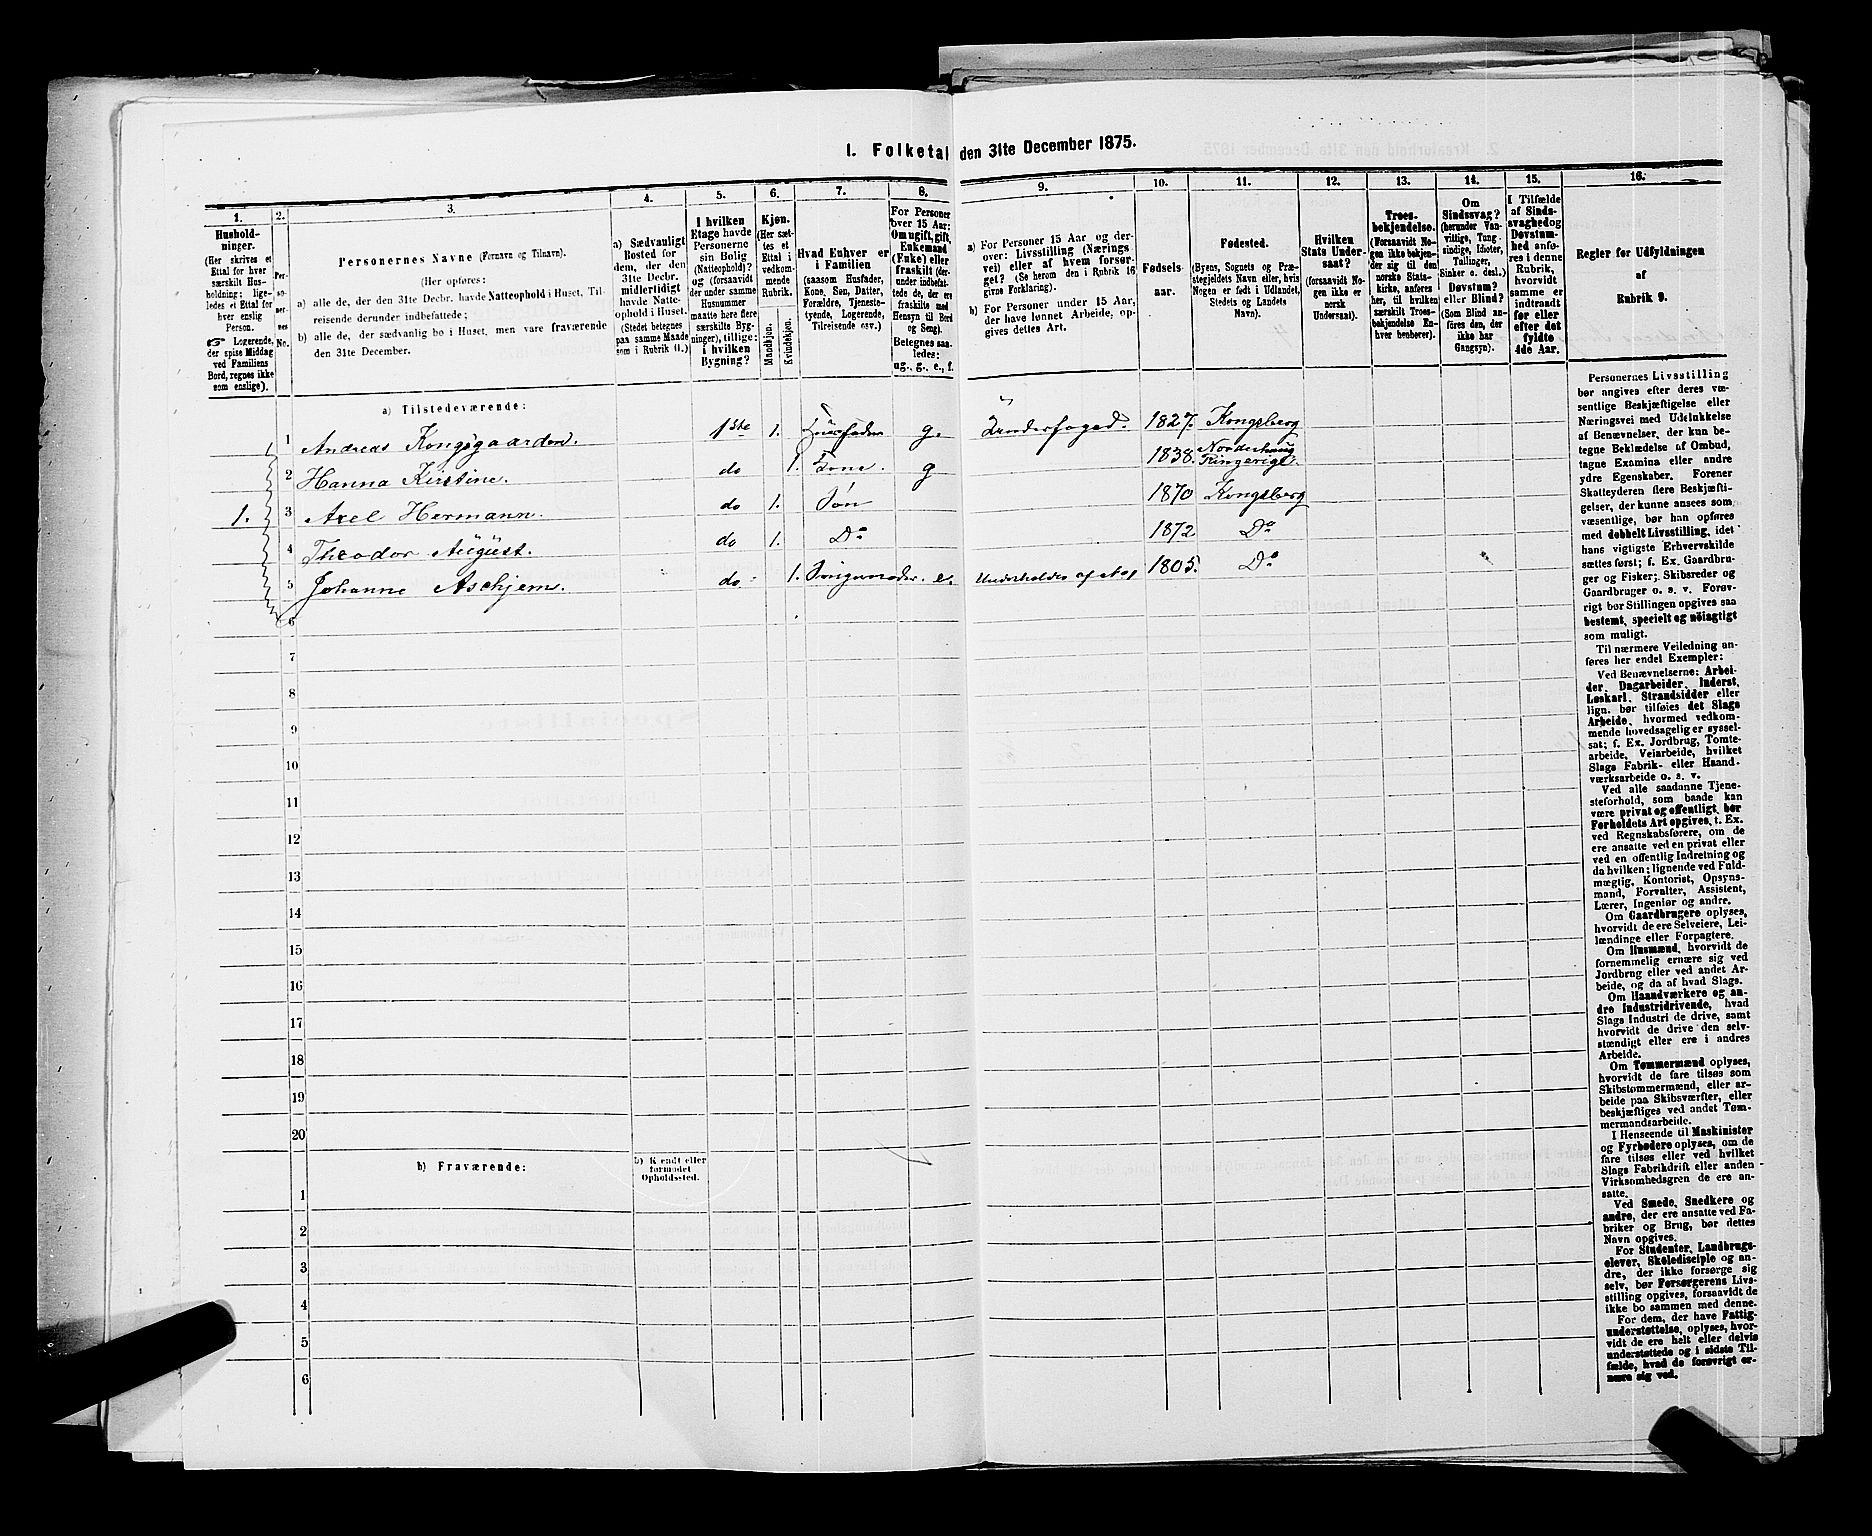 I. Folketal den 31te December 1875.
1.
Hushold-
ninger.
(Her skrives et
Ettal for hver
særskilt Hus-
holdning; lige-
ledes et Ettal for
hver enslig
Person.
☞ Logerende,
der spise Middag
ved Familiens
Bord, regnes ikke
som enslige).
2.
Per-
so-
ner-
nes
No.
3.
Personernes Navne (Fornavn og Tilnavn).
(Her opføres:
a) alle de, der den 31te Decbr. havde Natteophold i Huset, Til-
reisende derunder indbefattede;
b) alle de, der sædvanlig bo i Huset, men vare fraværende
den 31te December.
4.
a) Sædvanligt
Bosted for
dem, der den
31te Decbr.
midlertidigt
havde Natte-
ophold i Huset.
(Stedet betegnes
paa samme Maade
som i Rubrik 11.)
5.
I hvilken
Etage havde
Personerne
sin Bolig
(Natteophold)?
og (forsaavidt
der under samme
Husnummer
maatte høre flere
særskilte Byg-
ninger), tillige:
i hvilken
Bygning?
6.
Kjøn.
(Her sæt-
tes et
Ettal i
vedkom-
mende
Rubrik.
Mandkjøn.
Kvindekjøn.
7.
Hvad Enhver er
i Familien
(saasom Husfader,
Kone, Søn, Datter,
Forældre, Tjeneste-
tyende, Logerende,
Tilreisende osv.)
8.
For Personer
over 15 Aar:
Om ugift, gift,
Enkemand
(Enke) eller
fraskilt (der-
under indbefat-
tede de, der ere
fraskilte med
Hensyn til Bord
og Seng).
Betegnes saa-
ledes:
ug., g., e., f.
9.
a) For Personer 15 Aar og der-
over: Livsstilling (Nærings-
vei) eller af hvem forsør-
get? (Se herom den i Rubrik 16
givne Forklaring).
b) For Personer under 15 Aar,
der have lønnet Arbeide, op-
gives dettes Art.
10.
Fødsels-
aar.
11.
Fødested.
(Byens, Sognets og Præ-
stegjeldets Navn eller, hvis
Nogen er født i Udlandet,
Stedets og Landets
Navn).
12.
Hvilken
Stats Under-
saat?
(forsaavidt No-
gen ikke er
norsk
Undersaat).
13.
Troes-
bekjendelse.
(Forsaavidt No-
gen ikke bekjen-
der sig til den
norske Stats-
kirke, anføres
her, til hvilken
særskilt Troes-
bekjendelse En-
hver henhører).
14.
Om
Sindssvag?
(herunder Van-
vittige, Tung-
sindige, Idioter,
Tullinger,
Sinker o. desl.)
Døvstum?
eller Blind?
(Som Blind an-
føres den, der
ikke har
Gangsyn).
15.
I Tilfælde
af Sinds-
svaghed og
Døvstum-
hed anfø-
res i denne
Rubrik,
hvorvidt
samme er
indtraadt
før eller
efter det
fyldte
4de Aar.
16.
Regler for Udfyldningen
af
Rubrik 9.
a) Tilstedeværende:
1 Andreas Kongsgaarden. 1ste 1. Huusfader g. Underfoged. 1827. Kongsberg
2 Hanna Kirstine. do 1. Kone. g 1838. Norderhaug Ringerige.
1. 3 Axel Hermann. do 1. Søn 1870 Kongsberg
4 Theodor August. do 1. Do 1872 Do
5 Johanne Aschjem. do 1. e. Underholdes af 1805. Do
6
7
8
9
10
11
12
13
14
15
16
17
18
19
20
b) Fraværende:
b) Kjendt eller
formodet
Opholdssted.
1
2
3
4
5
6
Personernes Livsstilling
bør angives efter deres væ-
sentlige Beskjæftigelse eller
Næringsvei med Udelukkelse
af Benævnelser, der kun be-
tegne Beklædelse af Ombud,
tagne Examina eller andre
ydre Egenskaber. Forener
Skatteyderen flere Beskjæfti-
gelser, der kunne ansees som
væsentlige, bør han opføres
med dobbelt Livsstilling, idet
hans vigtigste Erhvervskilde
sættes først; f. Ex. Gaardbru-
ger og Fisker; Skibsreder og
Gaardbruger o. s. v. Forøv-
rigt bør Stillingen opgives saa
bestemt, specielt og nøiagtigt
som muligt.
Til nærmere Veiledning an-
føres her endel Exempler:
Ved Benævnelserne: Arbei-
der, Dagarbeider, Inderst,
Løskarl, Strandsidder eller
lign. bør tilføies det Slags
Arbeide, hvormed vedkom-
mende hovedsagelig er syssel-
sat; f. Ex. Jordbrug, Tomte-
arbeide, Veiarbeide, hvilket
Slags Fabrik- eller Haand-
værksarbeide o. s. v.
Ved alle saadanne Tjene-
steforhold, som baade kan
være privat og offentligt, bør
Forholdets Art opgives, t. Ex.
ved Regnskabsførere, om de
ere ansatte ved en privat eller
ved en offentlig Indretning og
da hvilken; lignende ved Fuld-
mægtig, Kontorist, Opsyns-
mand, Forvalter, Assistent,
Lærer, Ingeniør og andre.
Om Gaardbrugere oplyses,
hvorvidt de ere Selveiere, Lei-
lændinge eller Forpagtere.
Om Husmænd, hvorvidt de
fornemmelig ernære sig ved
Jordbrug eller ved andet Ar-
beide, og da af hvad Slags.
Om Haandværkere og an-
dre Industridrivende, hvad
Slags Industri de drive, samt
hvorvidt de drive den selv-
stændigt eller ere i andres
Arbeide.
Om Tømmermænd oplyses,
hvorvidt de fare tilsøs som
Skibstømmermænd, eller ar-
beide paa Skibsværfter, eller
beskjæftiges ved andet Tøm-
mermandsarbeide.
I Henseende til Maskinister
og Fyrbødere oplyses, om de
fare tilsøs eller ved hvilket
Slags Fabrikdrift eller anden
Virksomhedsgren de ere an-
satte.
Ved Smede, Snedkere og
andre, der ere ansatte ved Fa-
briker og Brug, bør dettes
Navn opgives.
For Studenter, Landbrugs-
elever, Skoledisciple og an-
dre, der ikke forsørge sig
selv, bør Forsørgerens Livs-
stilling opgives, forsaavidt de
ikke bo sammen med denne.
For dem, der have Fattig-
understøttelse, oplyses, hvor-
vidt de ere helt eller delvis
understøttede og i sidste Til-
fælde, hvad de forøvrigt er-
nære sig ved.